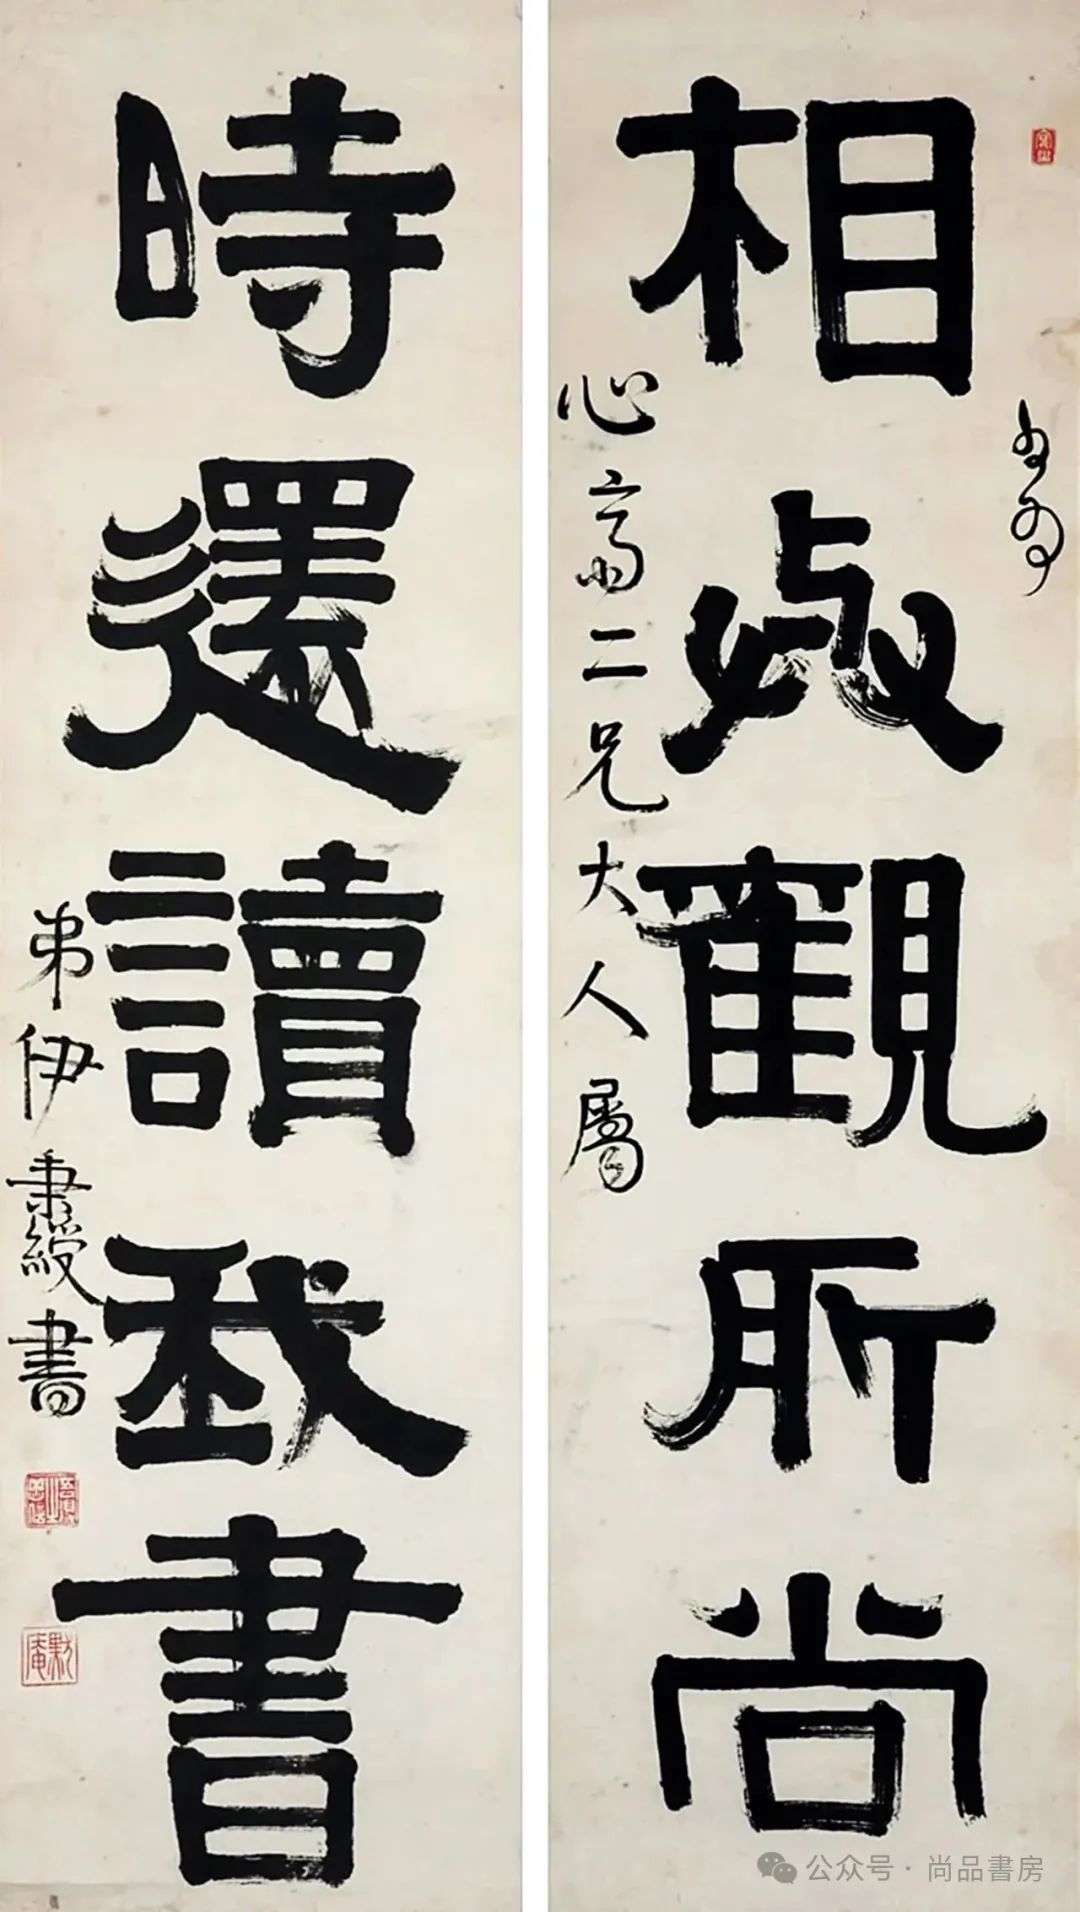 相與觀所尚
心齋二兄大人屬
時還讀我書
弟伊秉綬書
默庵
公众号·尚品書房